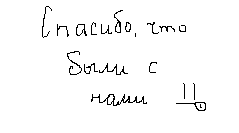 Спасибо, что
были с
нами